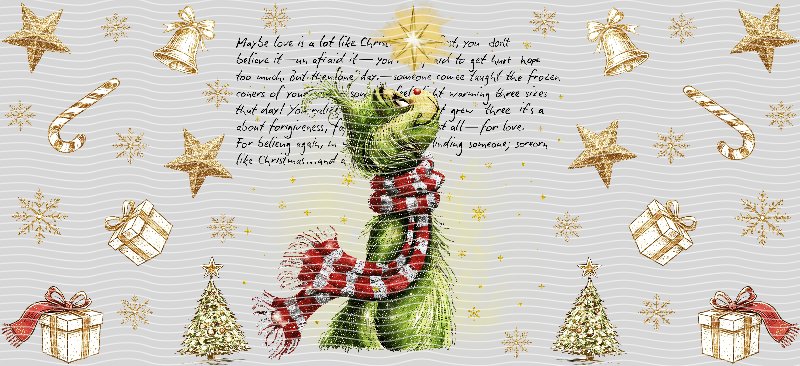 Maybe love is a lot like Chris t, you don't
believe it — un afraid it — you aid to get hurt hope
too much. But then one day — someone comes taught the frozen
corners of your som light warming three sizes
that day! You grew three it's a
about forgiveness, t all — for love.
For believing again, in finding someone, serearn
like Christmas...and a